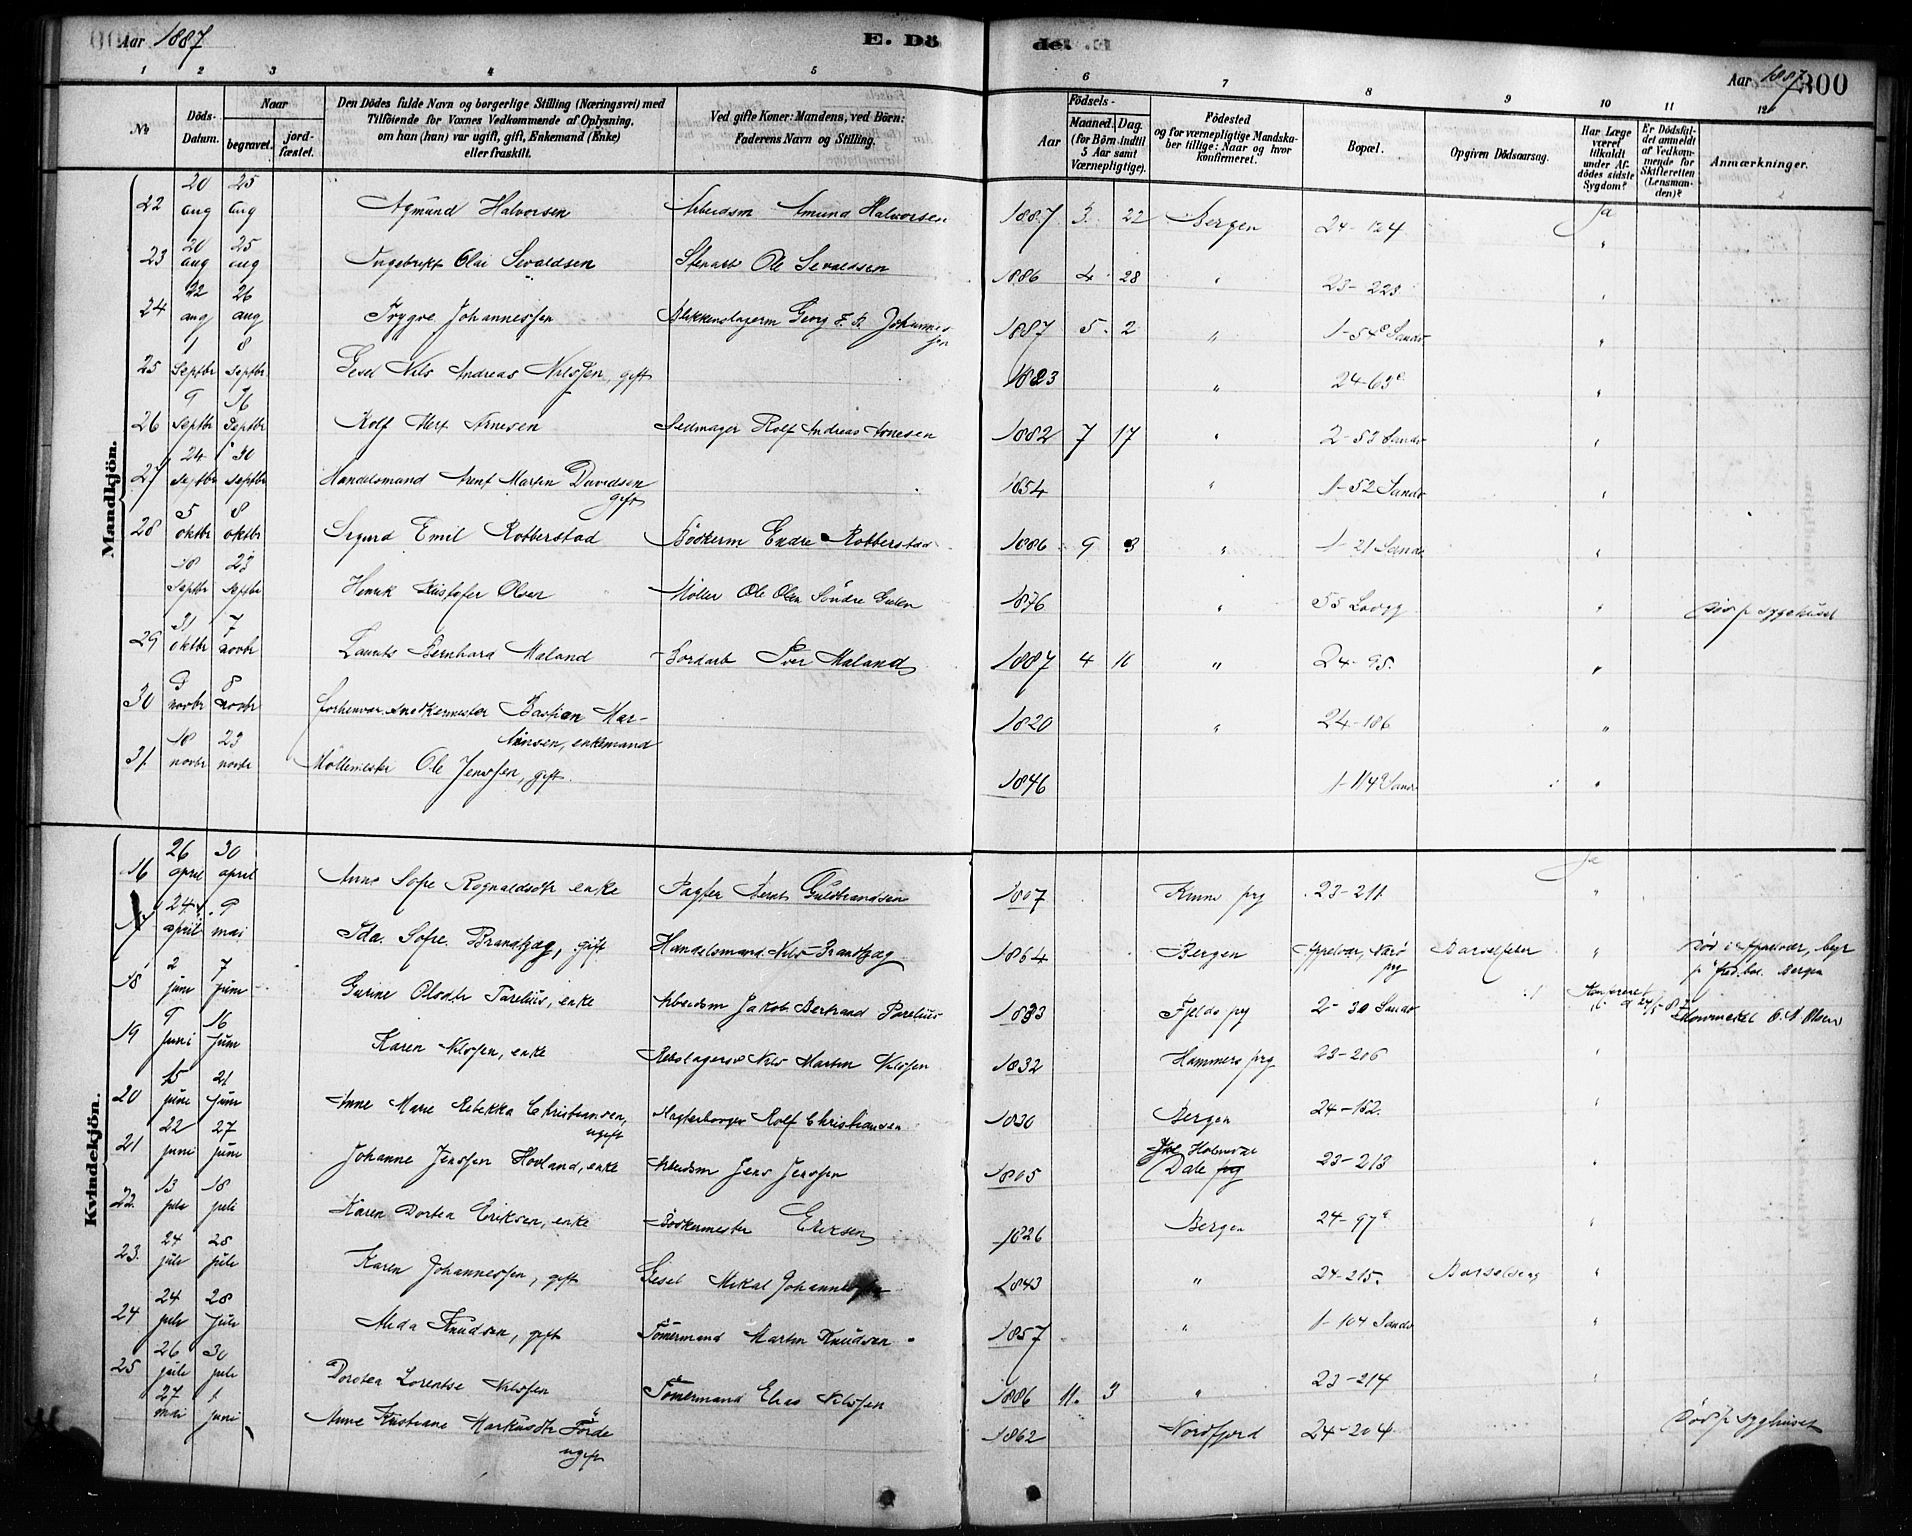 Aar 1887
E. Dö
de.
Aar 1887
300
1 2 3 4 5 6 7 8 9 10 11 12
No
Döds-Datum.
Naar
begravet.
jord-fæstet.
Den Dödes fulde Navn og borgerlige Stilling (Næringsvei) med
Tilföiende for Voxnes Vedkommende af Oplysning,
om han (hun) var ugift, gift, Enkemand (Enke)
eller fraskilt.
Ved gifte Koner: Mandens, ved Börn:
Faderens Navn og Stilling.
Födsels-
Aar
Maaned. Dag.
(for Börn indtil
5 Aar samt
Værnepligtige).
Födested
og for værnepligtige Mandska-
ber tillige: Naar og hvor
konfirmeret.
Bopæl.
Opgiven Dödsaarsag.
Har Læge
været
tilkaldt
under Af-
dödes sidste
Sygdom?
Er Dödsfal-
det anmeldt
af Vedkom-
mende for
Skifteretten
(Lensman-
den)?
Anmærkninger.
Mandkjön.
22 20 aug 25 aug Agmund Halvorsen Arbeidsm Amund Halvorsen 1887 3 22 Bergen 24-124 Ja
23 20 aug 25 aug Ingebrikt Olai Sevaldsen Stenarb Ole Sevaldsen 1886 4 28 " 23-223 "
24 22 aug 26 aug Trygve Johannessen Blikkenslagerm Georg F. Johannessen 1887 5 2 " 1-54 Sandv "
25 1 Septbr 8 Septbr Gesel Nils Andreas Nilssen, gift 1823 " 24-63 "
26 9 Septbr 16 Septbr Rolf Arnesen Rolf Andreas Arnesen 1882 7 17 " 2-53 Sandv "
27 24 Septbr 30 Septbr Handelsmand Arent Martin Davidsen gift 1854 " 1-52 Sandv "
28 5 oktbr 8 oktbr Sigurd Emil Robberstad Bödkerm Endre Robberstad 1886 9 3 " 1-21 Sandv "
18 Septbr 23 Septbr Henrik Kristofer Olsen Möller Ole Olsen Söndre Gulen 1876 " 55 "
29 31 oktbr 7 novbr Laurits Bernhard Maland Iver Maland 1887 4 16 " 24-95 "
30 3 novbr 8 novbr forhenvær. Snedkermester Bastian Mar-
tinsen, enkemand 1820 " 24-186 "
31 18 novbr 23 novbr Möllemester Ole Jenssen, gift. 1846 1-114 Sandv "
Kvindekjön.
16 26 april 30 april Anne Sofie Rognaldsdtr enke Berent Guldbrandsen 1807 Kinn prg 23-211 Ja
17 24 april 9 mai Ida Sofie Brandtzæg, gift Handelsmand Nils Brandtzæg 1864 Bergen Appelvær, Nærö prg Barselfeber " Död i Appelvær, begr
18 2 juni 7 juni Gurine Olsdtr Parelius, enke Arbeidsm Jakob Bertrand Parelius 1833 Fjelds prg 2-30 Sandv
19 9 juni 16 juni Karen Nilssen, enke Nils Martin Nilssen 1832 Hammers prg 23-206 "
20 15 juni 21 juni Anne Marie Rebekka Christiansen, ugift Rolf Christiansen 1830 Bergen 24-152 "
21 22 juni 27 juni Johanne Jenssen Hovland, enke Arbeidsm Jens Jenssen 1805 Dale prg 23-213 "
22. 13 juli 18 juli Karen Dortea Eriksen, enke Bödkermester Eriksen 1826 Bergen 24-97 "
23. 24 juli 28 juli Karen Johannessen, gift Gesel Mikal Johannessen 1843 " 24-215. Barselseng "
24 24 juli 28 juli Alida Knudsen, gift Tömermand Martin Knudsen 1857 " 1-104 Sandv "
25 26 juli 30 juli Dorotea Lorentse Nilssen Tömermand Elias Nilssen 1886 11. 3 " 23-214 "
27 mai 1 juni Anne Kristiane Markusdtr Förde ugift 1862 Nordfjord 24-204 Död p sygehuset